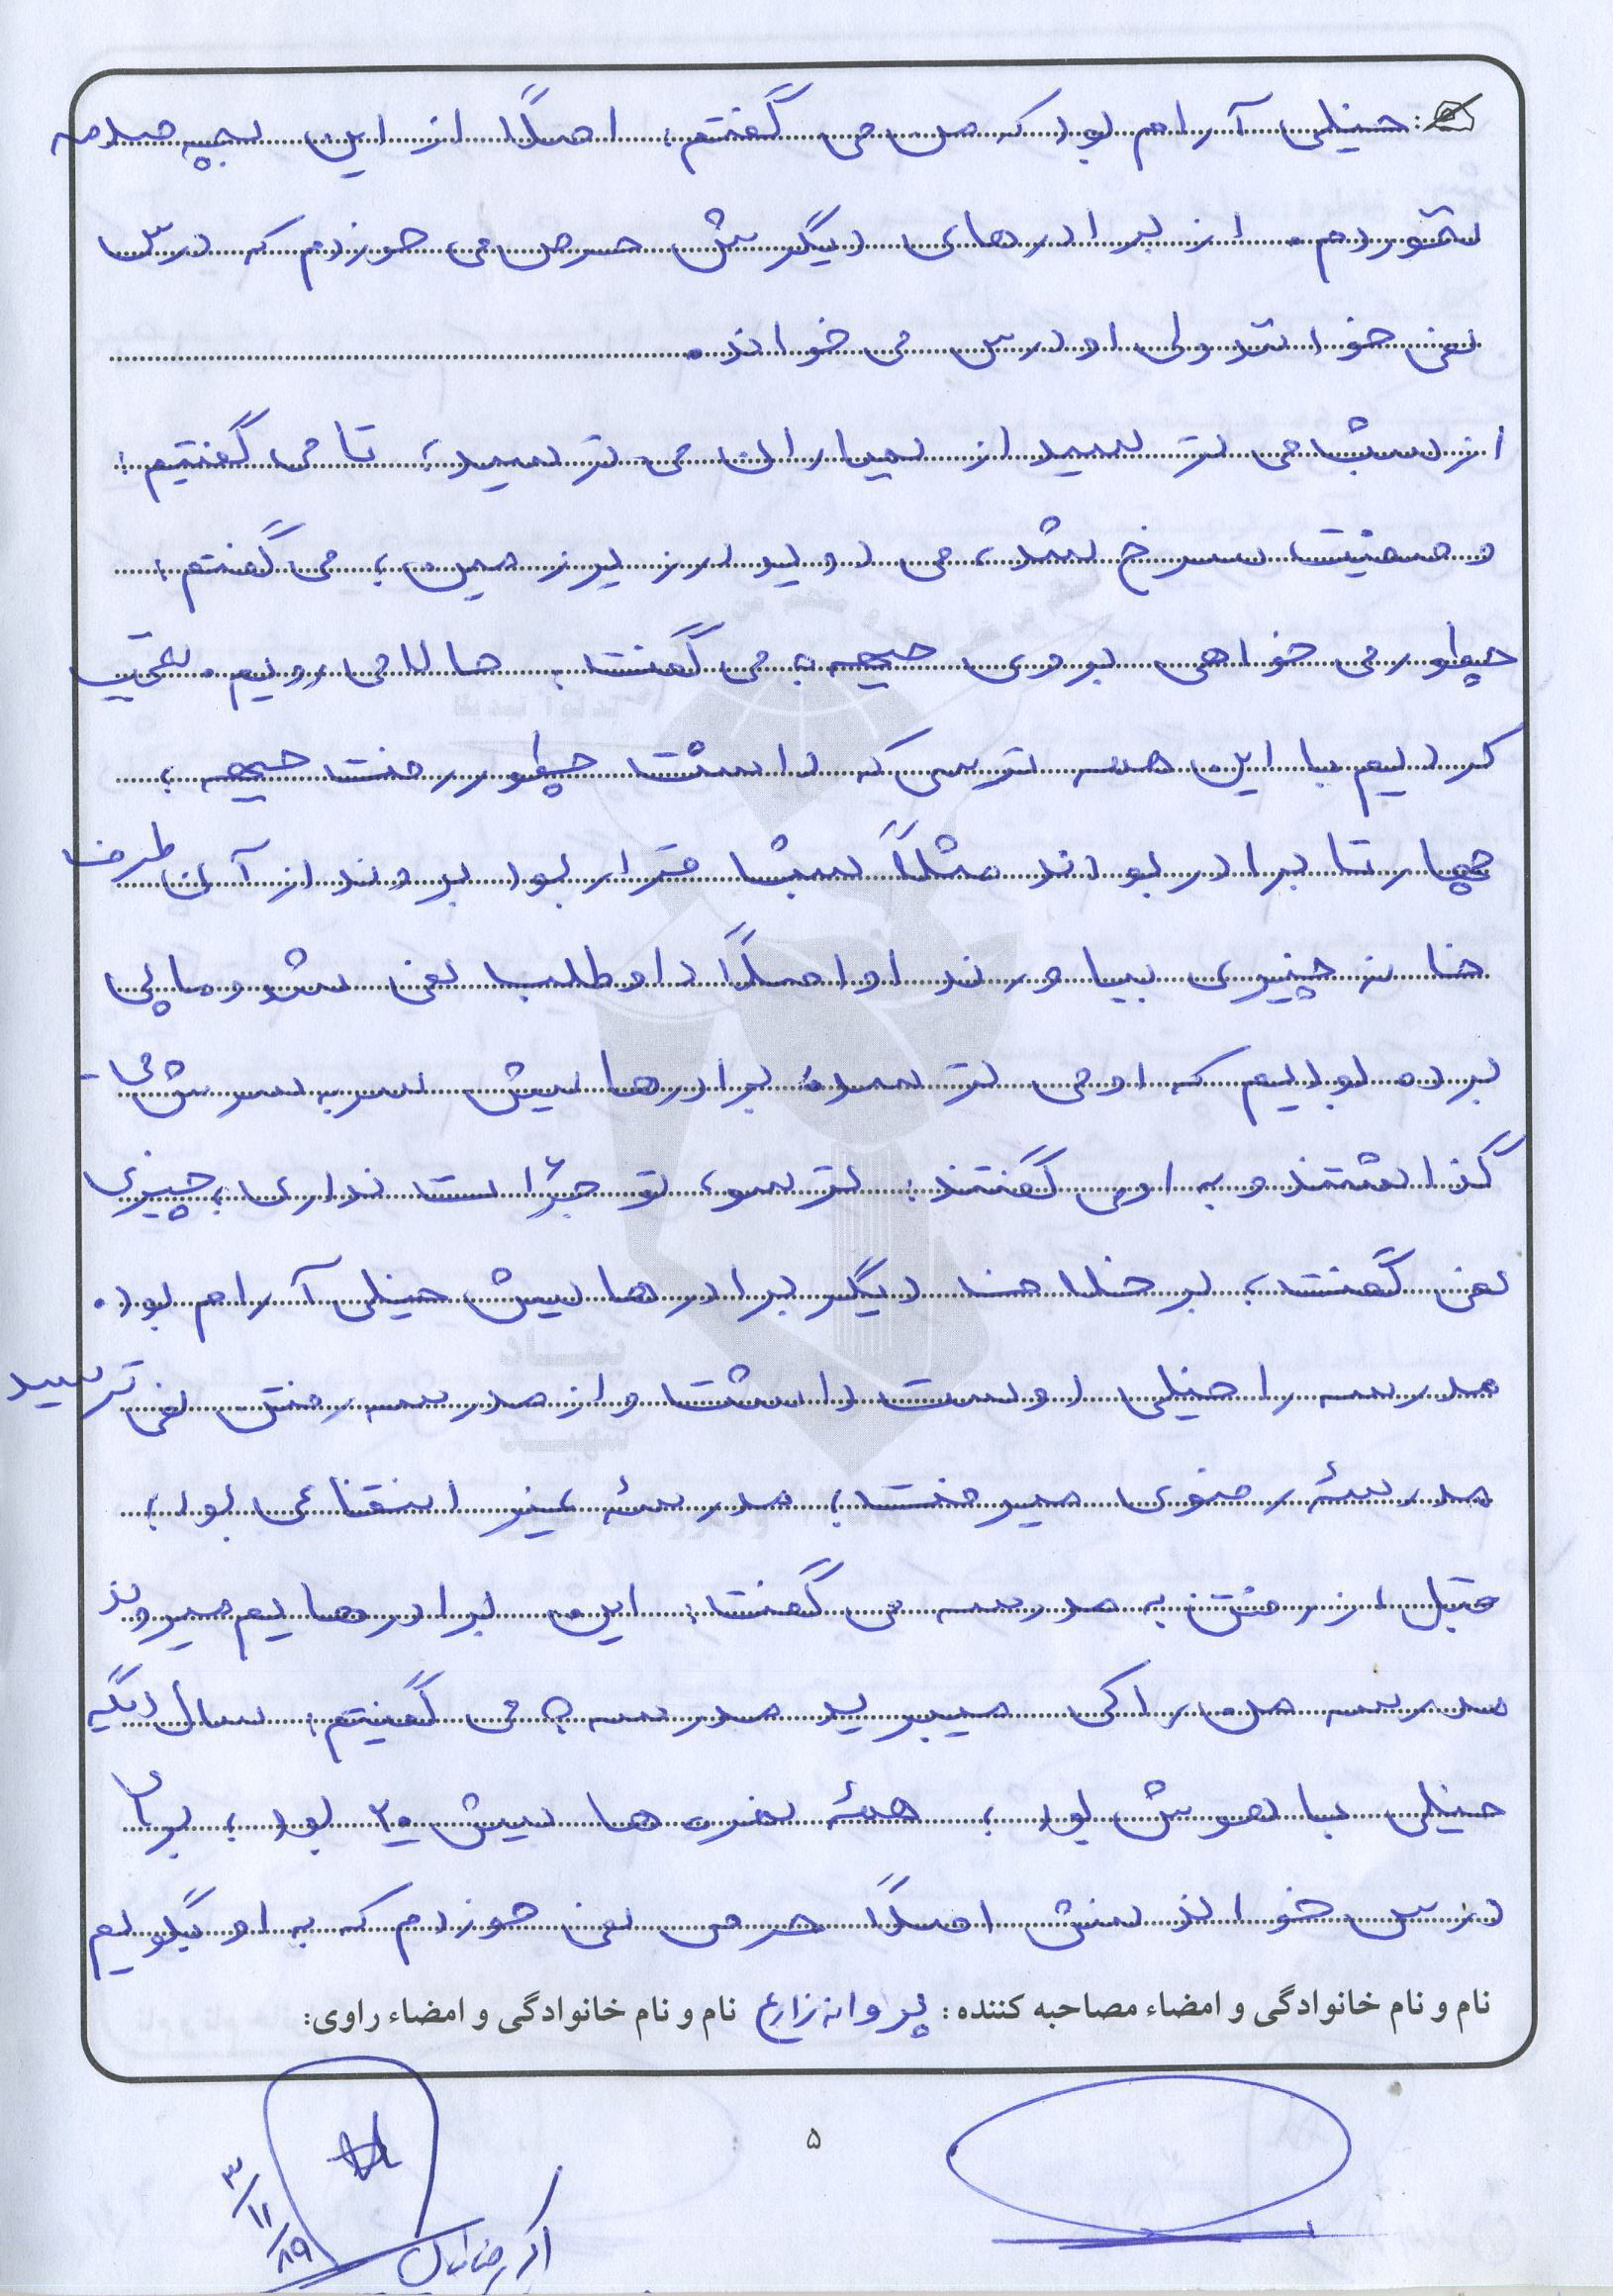 : خیلی آرام بود که من می گفتم: اصلاً از این بچه صدمه
نخوردم. از برادرهای دیگرش حرص می خوردم که درس
نمی خواندند ولی او درس می خواند.
از شب می ترسید از بمباران می ترسید، تا می گفتیم:
وضعیت سرخ شد، می دوید در زیرزمین؛ می گفتم:
چطور می خواهی بروی جبهه؟ می گفت: حالا می رویم. تعجب
کردیم با این همه ترسی که داشت چطور رفت جبهه؛
چهار تا برادر بودند مثلاً شب قرار بود بروند از آن طرف
خانه چیزی بیاورند او اصلاً داوطلب نمی شد و ما پی
برده بودیم که او می ترسد، برادرهایش سر به سرش می
گذاشتند و به او می گفتند: ترسو، تو جرأت نداری؛ چیزی
نمی گفت؛ برخلاف دیگر برادرهایش خیلی آرام بود.
مدرسه را خیلی دوست داشت و از مدرسه رفتن نمی ترسید
مدرسهٔ رضوی میرفت؛ مدرسهٔ غیر انتفاعی بود؛
قبل از رفتن به مدرسه می گفت: این برادرهایم میروند
مدرسه من را کی میبرید مدرسه؟ می گفتیم: سال دیگه
خیلی باهوش بود؛ همهٔ نمره هایش ۲۰ بود؛ برای
درس خواندنش اصلاً حرص نمی خوردم که به او بگویم
نام و نام خانوادگی و امضاء مصاحبه کننده: پروانه زارع نام و نام خانوادگی و امضاء راوی:
۵
۸۹/۱۱/۳